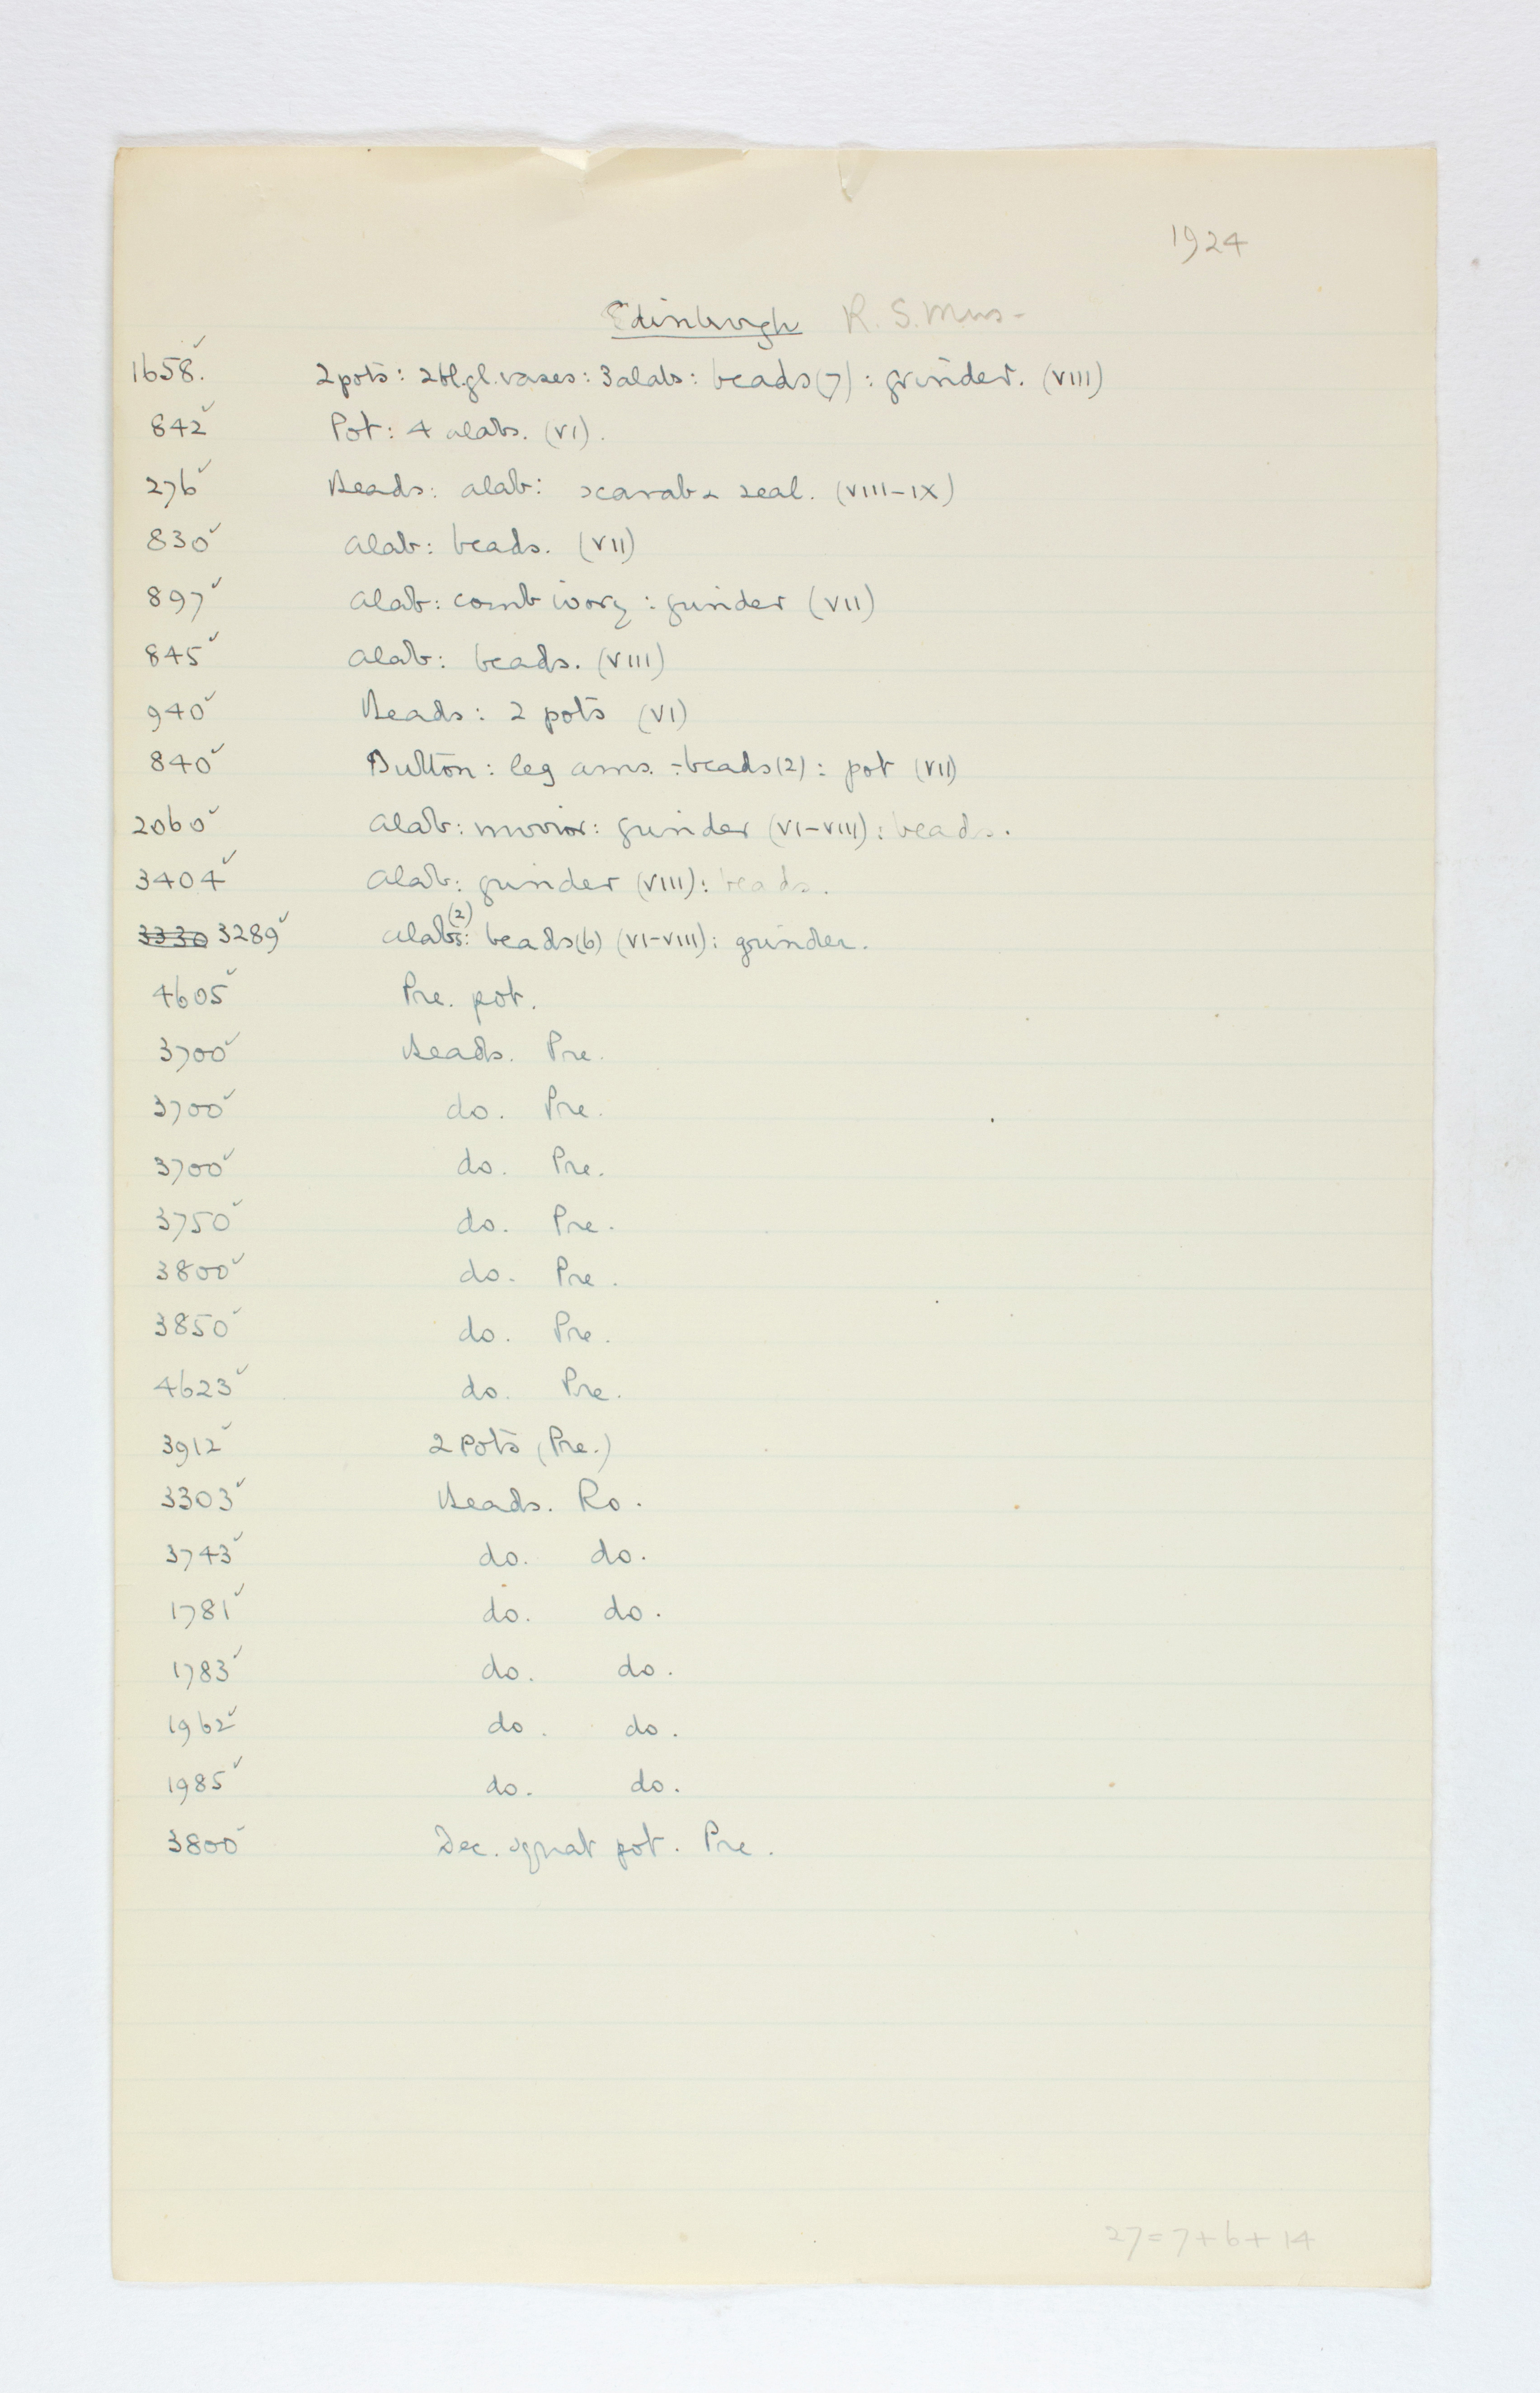 1924
Edinburgh R. S. Mus-
1658. ✓ 2 pots: 2 bl. gl. vases: 3 alabs: beads (7): grinder. (VIII)
842 ✓ Pot: 4 alabs. (VI).
276 ✓ Beads: alab: scarab & seal. (VIII-IX)
830 ✓ Alab: beads. (VII)
897 ✓ Alab: comb ivory: grinder (VII)
845 ✓ Alab: beads. (VIII)
940 ✓ Beads: 2 pots (VI)
840 ✓ Button: leg ams. : beads (2): pot (VII)
2060 ✓ Alab: mirror: grinder (VI-VIII): beads.
3404 ✓ Alab: grinder (VIII): beads.
3330 3289 ✓ Alabs (2): beads (6) (VI-VIII): grinder.
4605 ✓ Pre. pot.
3700 ✓ Beads. Pre.
3700 ✓ do. Pre.
3700 ✓ do. Pre.
3750 ✓ do. Pre.
3800 ✓ do. Pre.
3850 ✓ do. Pre.
4623 ✓ do. Pre.
3912 ✓ 2 Pots (Pre.)
3303 ✓ Beads. Ro.
3743 ✓ do. do.
1781 ✓ do. do.
1783 ✓ do. do.
1962 ✓ do. do.
1985 ✓ do. do.
3800 ✓ Dec. squat pot. Pre.
27 = 7 + 6 + 14